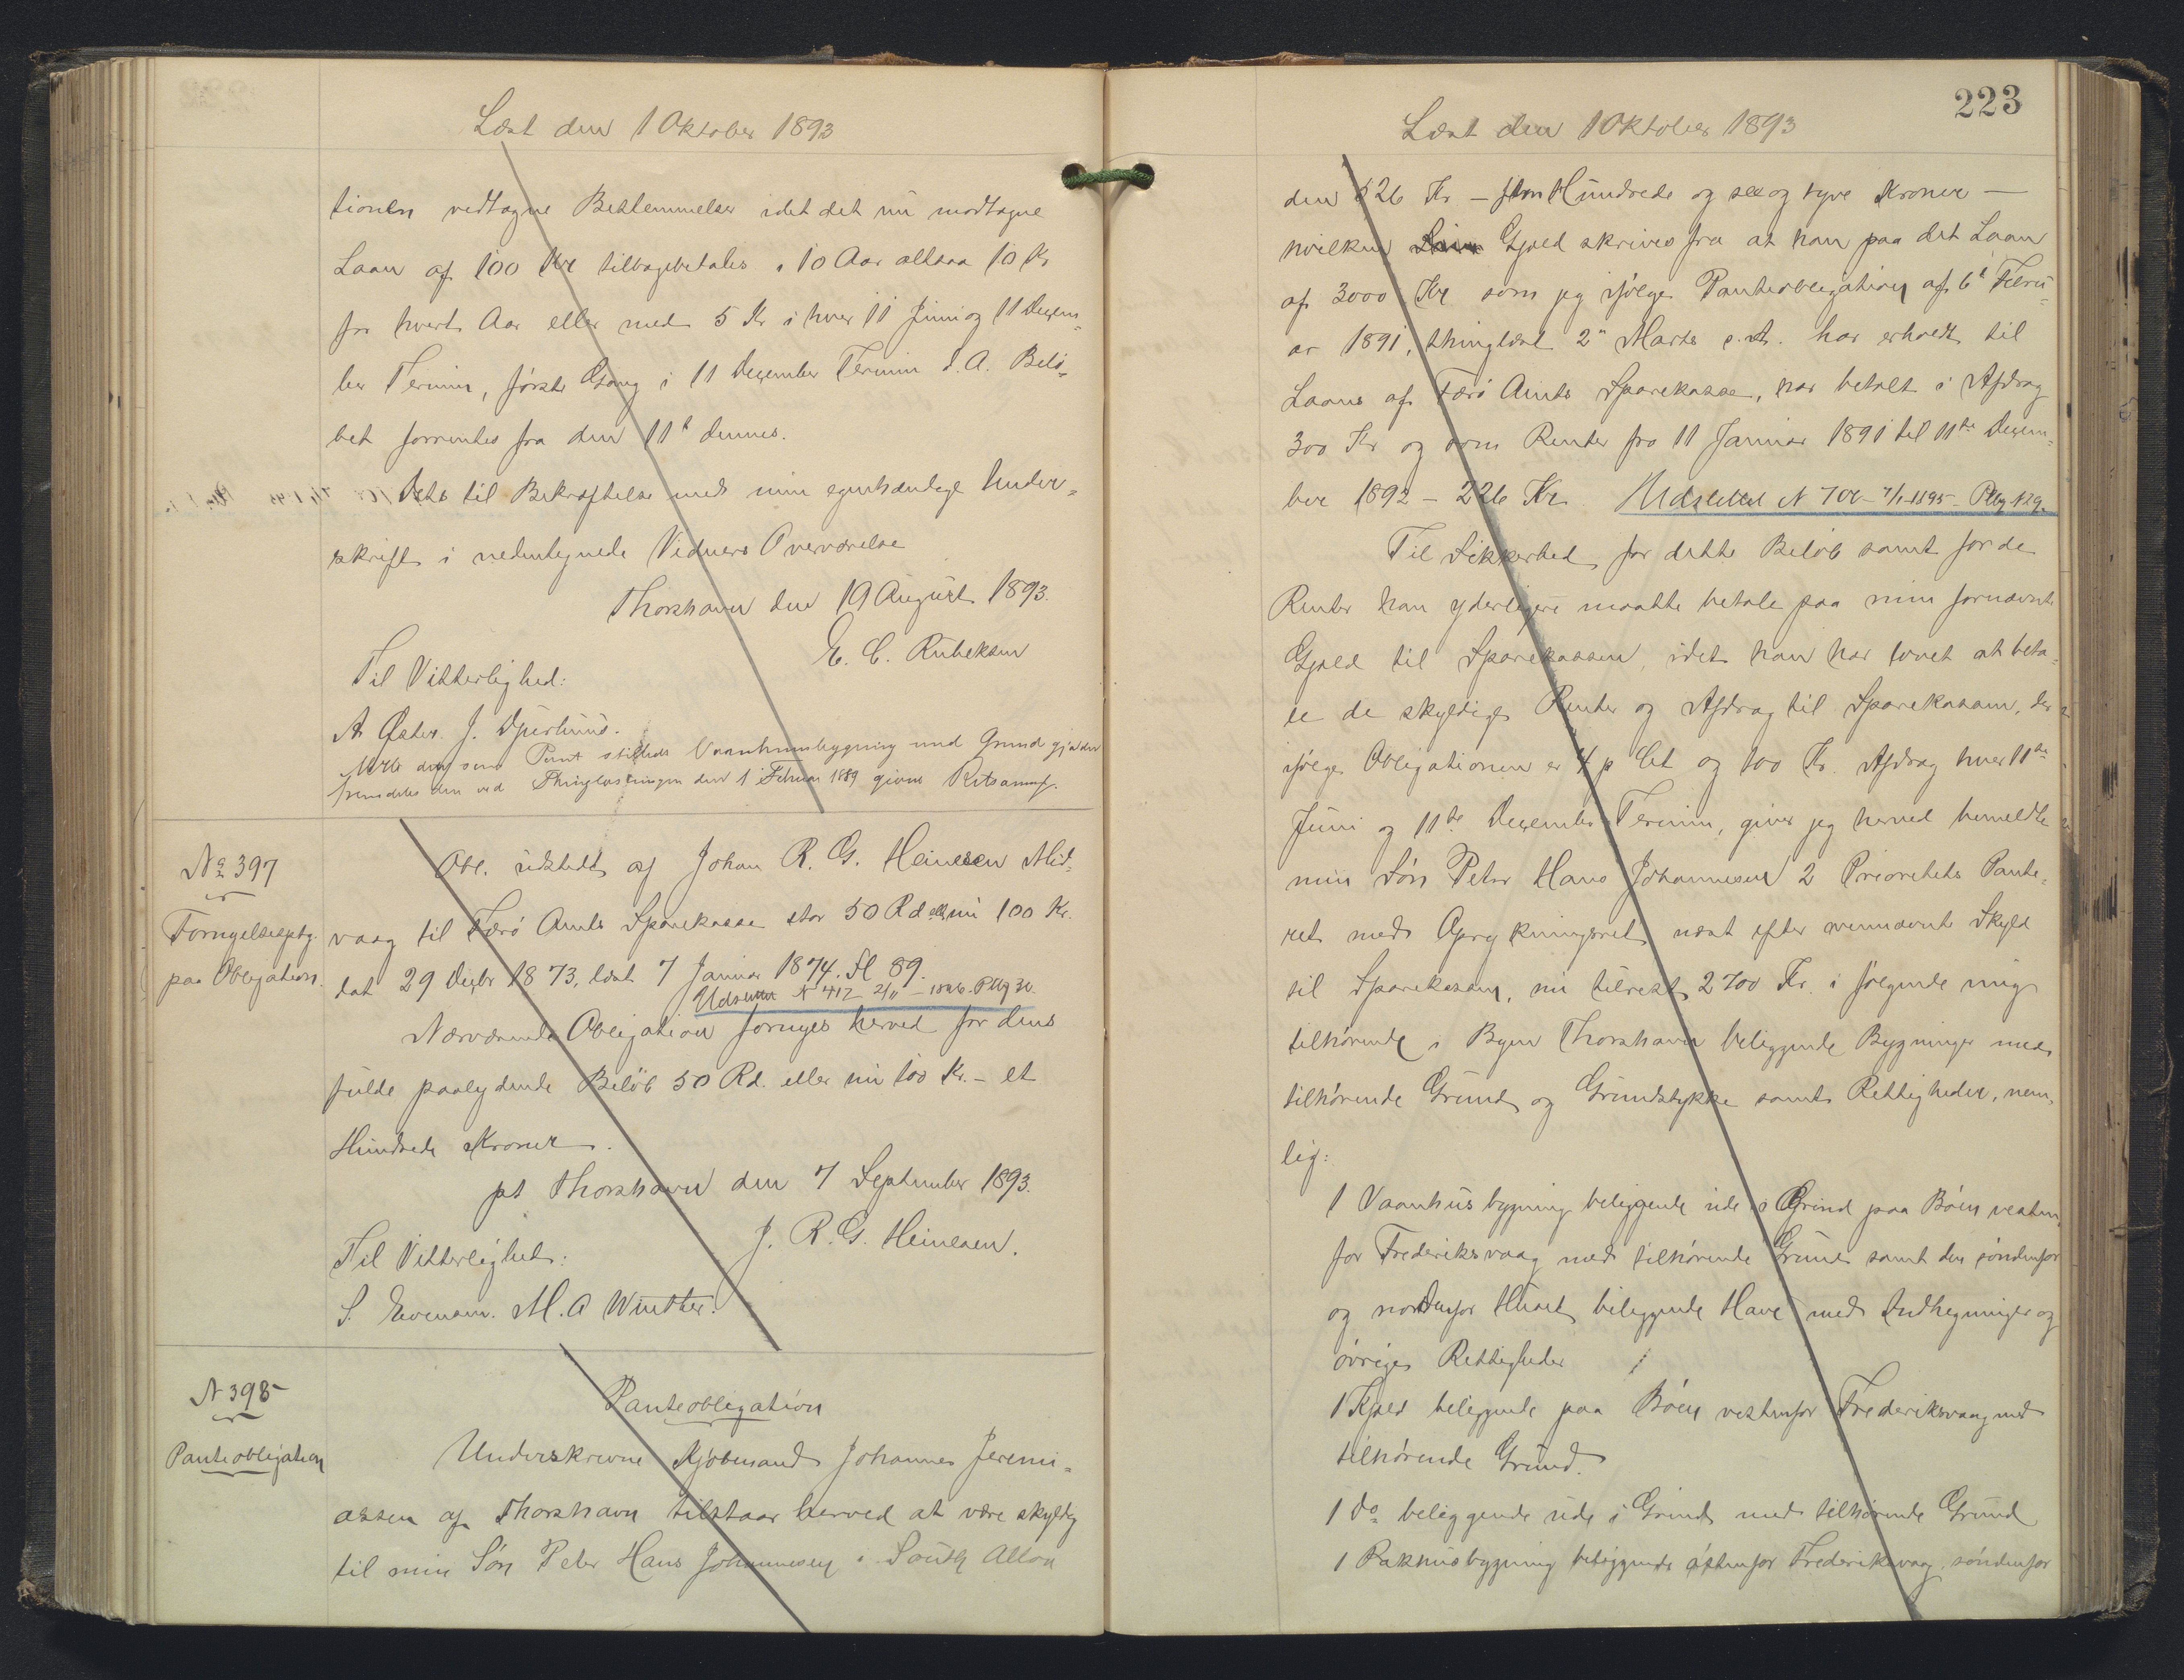 Læst den 1 Oktober 1893
tionen vedtagne Bestemmelser idet det nu modtagne
Laan af 100 Kr tilbagebetales i 10 Aar altsaa 10 Kr
for hvert Aar eller med 5 Kr i hver 11 Juni og 11 Decem=
ber Termin, første Gang i 11 December Termin d. A. Belø=
bet forrentes fra den 11t dennes.
Dette til Bekræftelse med min egenhændige Under=
skrift i undertegnede Vidners Overværelse
Thorshavn den 19 August 1893.
E. C. Rubeksen
Til Vitterlighed:
A Øster. J. Djurhuus.
den som Pant stillede Vaanhuusbygning med Grund gjælder
fremdeles den ved Thinglæsningen den 1 Februar 1889 givne Retsanm.
No 397
Fornyelsesptg.
paa Obligation.
Obl. udstedt af Johan R. G. Heinesen Mid=
vaag til Færø Amts Sparekasse stor 50 Rd eller nu 100 Kr.
dat 29 Decbr 1873, læst 7 Januar 1874. Fl 89.
Udslettet N 412 2/11 - 1886. Pbg 30.
Nærværende Obligation fornyes herved for dens
fulde paalydende Beløb 50 Rd. eller nu 100 Kr. - et
Hundrede Kroner.
pt Thorshavn den 7 September 1893.
J. R. G. Heinesen.
Til Vitterlighed:
S. Evensen. M. A Winther.
N 398
Panteobligation
Panteobligation
Underskrevne Kjøbmand Johannes Jeremi=
assen af Thorshavn tilstaar herved at være skyldig
til min Søn Peter Hans Johannesen i South Alloa
223
Læst den 1 Oktober 1893
den 526 Kr - fem Hundrede og sex og tyve Kroner -
hvilken Gjæld skrives fra at han paa det Laan
af 3000 Kr som jeg ifølge Panteobligation af 6t Febru=
ar 1891, thinglæst 2n Marts s. A. har erholdt til
Laans af Færø Amts Sparekasse, har betalt i Afdrag
300 Kr og som Renter fra 11 Januar 1891 til 11te Decem=
ber 1892 - 226 Kr. Udslettet N 708 - 7/1-1895 - Pbg N29.
Til Sikkerhed for dette Beløb samt for de
Renter han yderligere maatte betale paa min fornævnte
Gjæld til Sparekassen, idet han har lovet at beta=
le de skyldige Renter og Afdrag til Sparekassen, der
ifølge Obligationen er 4 p Ct og 100 Kr. Afdrag hver 11te
Juni og 11te December Termin, giver jeg herved bemeldte
min Søn Peter Hans Johannesen 2 Prioritets Pante=
ret med Oprykningsret næst efter ovennævnte Skyld
til Sparekassen, nu tilrest 2700 Kr. i følgende mig
tilhørende i Byen Thorshavn beliggende Bygninger med
tilhørende Grund og Grundstykke samt Rettigheder, nem=
lig:
1 Vaanhusbygning beliggende ude i Grind paa Bøen vesten
for Frederiksvaag med tilhørende Grund samt den søndenfor
og nordenfor Huset beliggende Have med Indhegninger og
øvrige Rettigheder
1 Kjeld beliggende paa Bøen vestenfor Frederiksvaag med
tilhørende Grund.
1 do beliggende ude i Grind med tilhørende Grund
1 Pakhusbygning beliggende østenfor Frederiksvaag, søndenfor